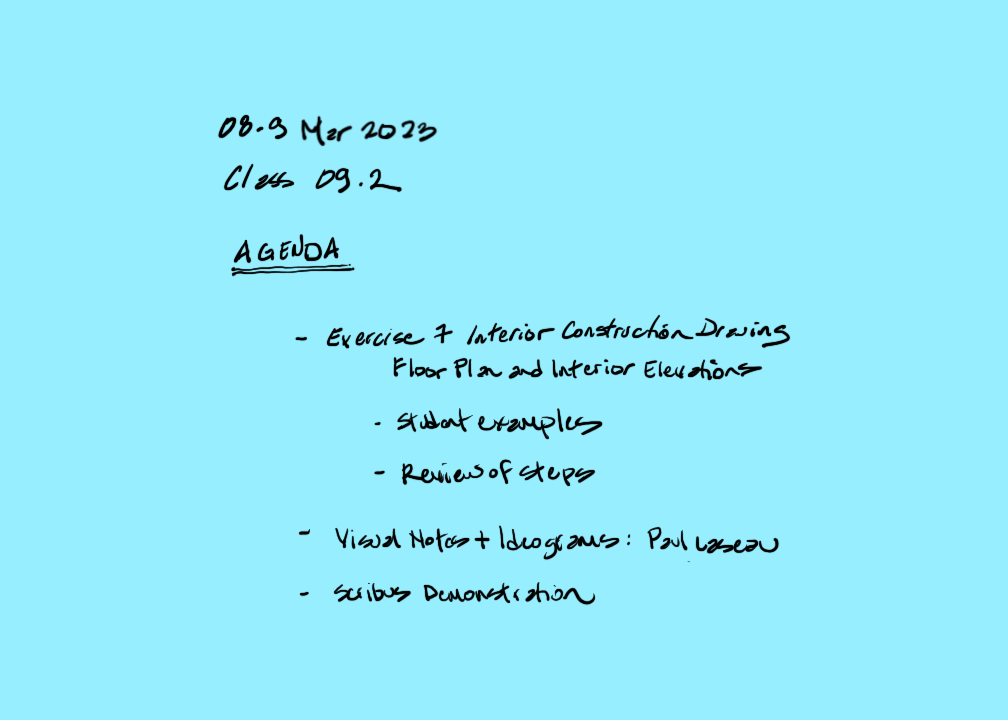 08.9 Mar 2023
Class 09.2
AGENDA
- Exercise 7 Interior Construction Drawing
Floor Plan and Interior Elevations
- Student examples
- Review of steps
- Visual Notes + Ideograms: Paul Laseau
- Scribus Demonstration